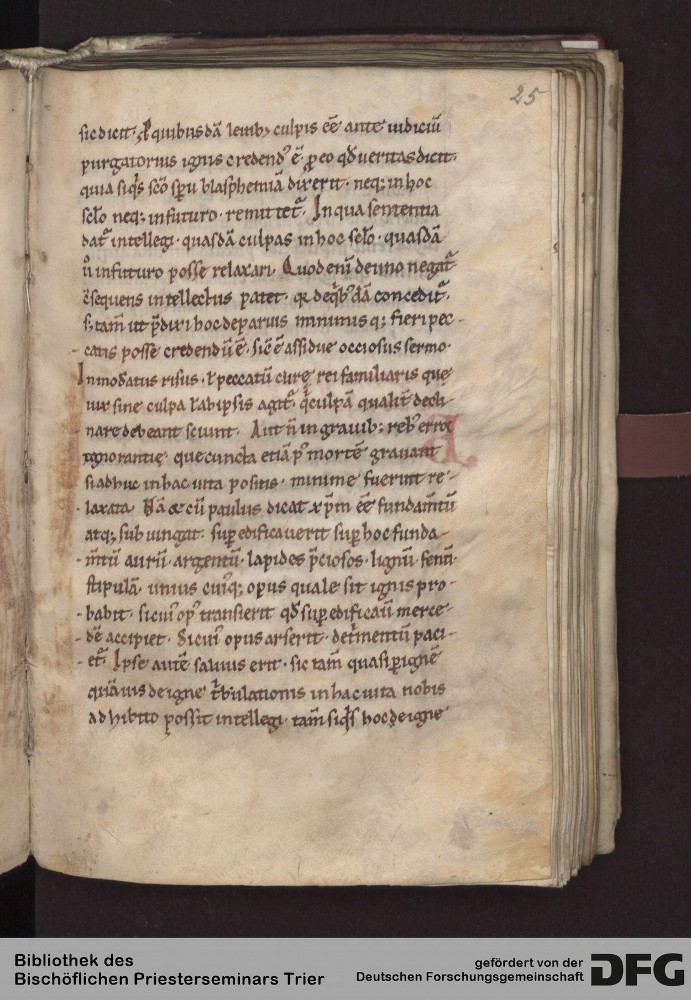 25
sic dicit. & ꝑ quibusdā leuib; culpis eē ante iudiciū
purgatorius ignis credend' ē. ꝓ eo qđ ueritas dicit.
quia siq's scō spu blasphemiā dixerit. neq; in hoc
scło neq; in futuro. remittet'. In qua sententia
dat' intellegi. quasdā culpas in hoc scło. quasdā
ů in futuro posse relaxari. Quod enī de uno negat'
cōsequens intellectus patet. q de qb'dā concedit'.
s; tam ut p̄dixi hoc de paruis minimisq; fieri pec-
catis posse credendū ē. sic ē assidue occiosus sermo.
Inmod'atus risus. ł peccatū curę rei familiaris quę
uix sine culpa ł ab ipsis agit'. q culpā qualit' decli-
nare debeant sciunt. Aut n̄ in grauib; reb' error
ignorantię. que cuncta etiā p' mortē grauant
si adhuc in hac uita positis. minime fuerint re-
laxata. Nā & cū paulus dicat xpm eē fundam̄tū
atq; subiungat. sup edificauerit sup hoc funda-
m̄tū aurū. argentū. lapides p̄ciosos. lignū. fenū.
stipulā. unius cui'q; opus quale sit ignis pro-
babit. si cui' op' transierit qđ sup edificauit merce-
dē accipiet. Si cui' opus arserit. det'mentū paci-
et'. Ipse autē saluus erit. sic tam quasi ꝑ ignē
quāuis de igne t'bulationis in hac uita nobis
adhibito possit intellegi. tam siq's hoc de igne
Bibliothek des
Bischöflichen Priesterseminars Trier
gefördert von der
Deutschen Forschungsgemeinschaft
DFG